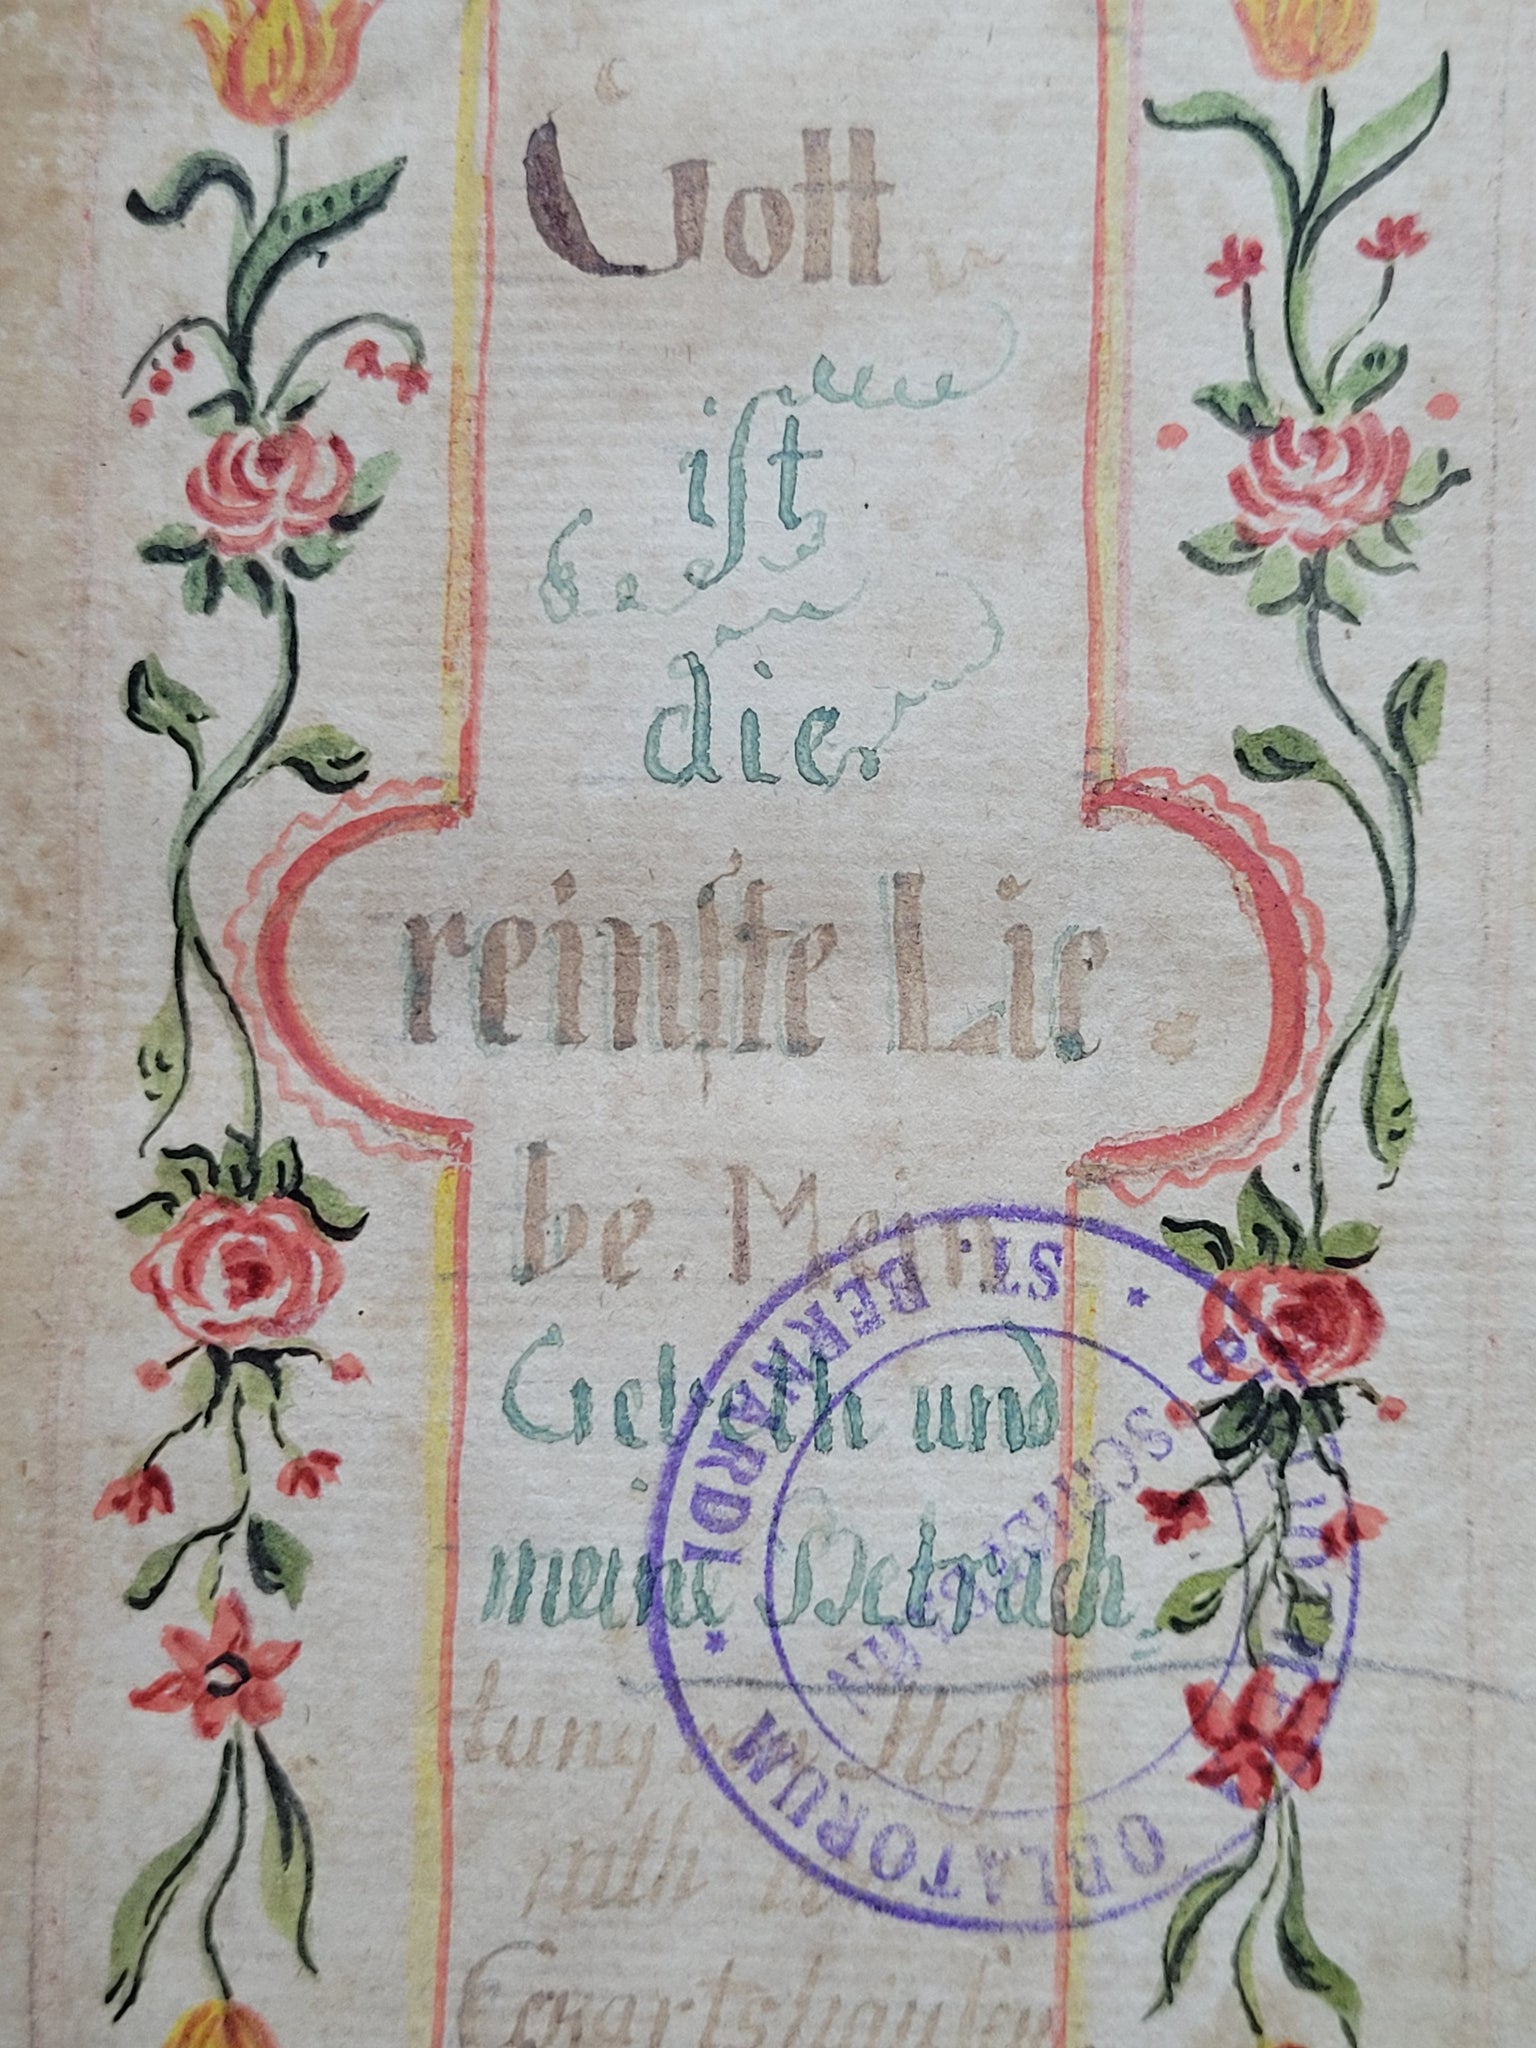 Gott
ist
die
reinste Lie
be. Mein
Gebeth und
meine Betrach
tung von Hof
rath v.
Eckartshausen
ST. BERNARDI
OBLATORUM